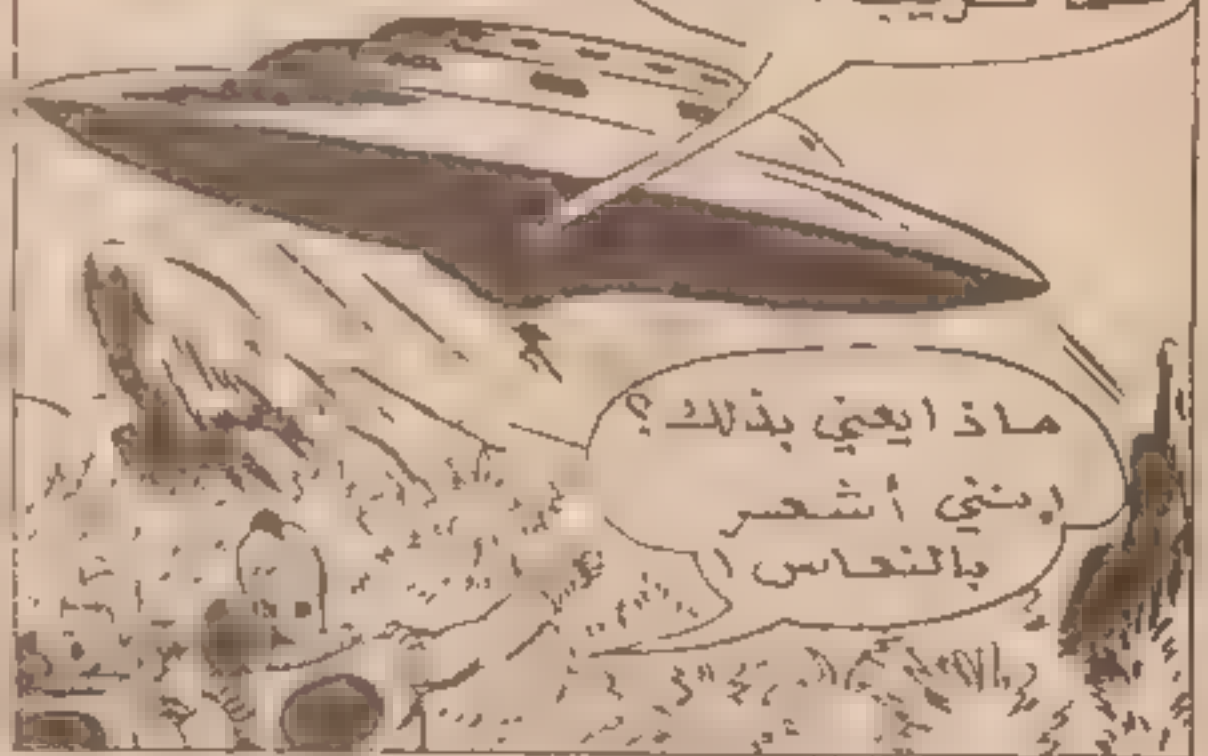 ماذا يعني بذلك؟
إنني أشعر
بالنعاس!